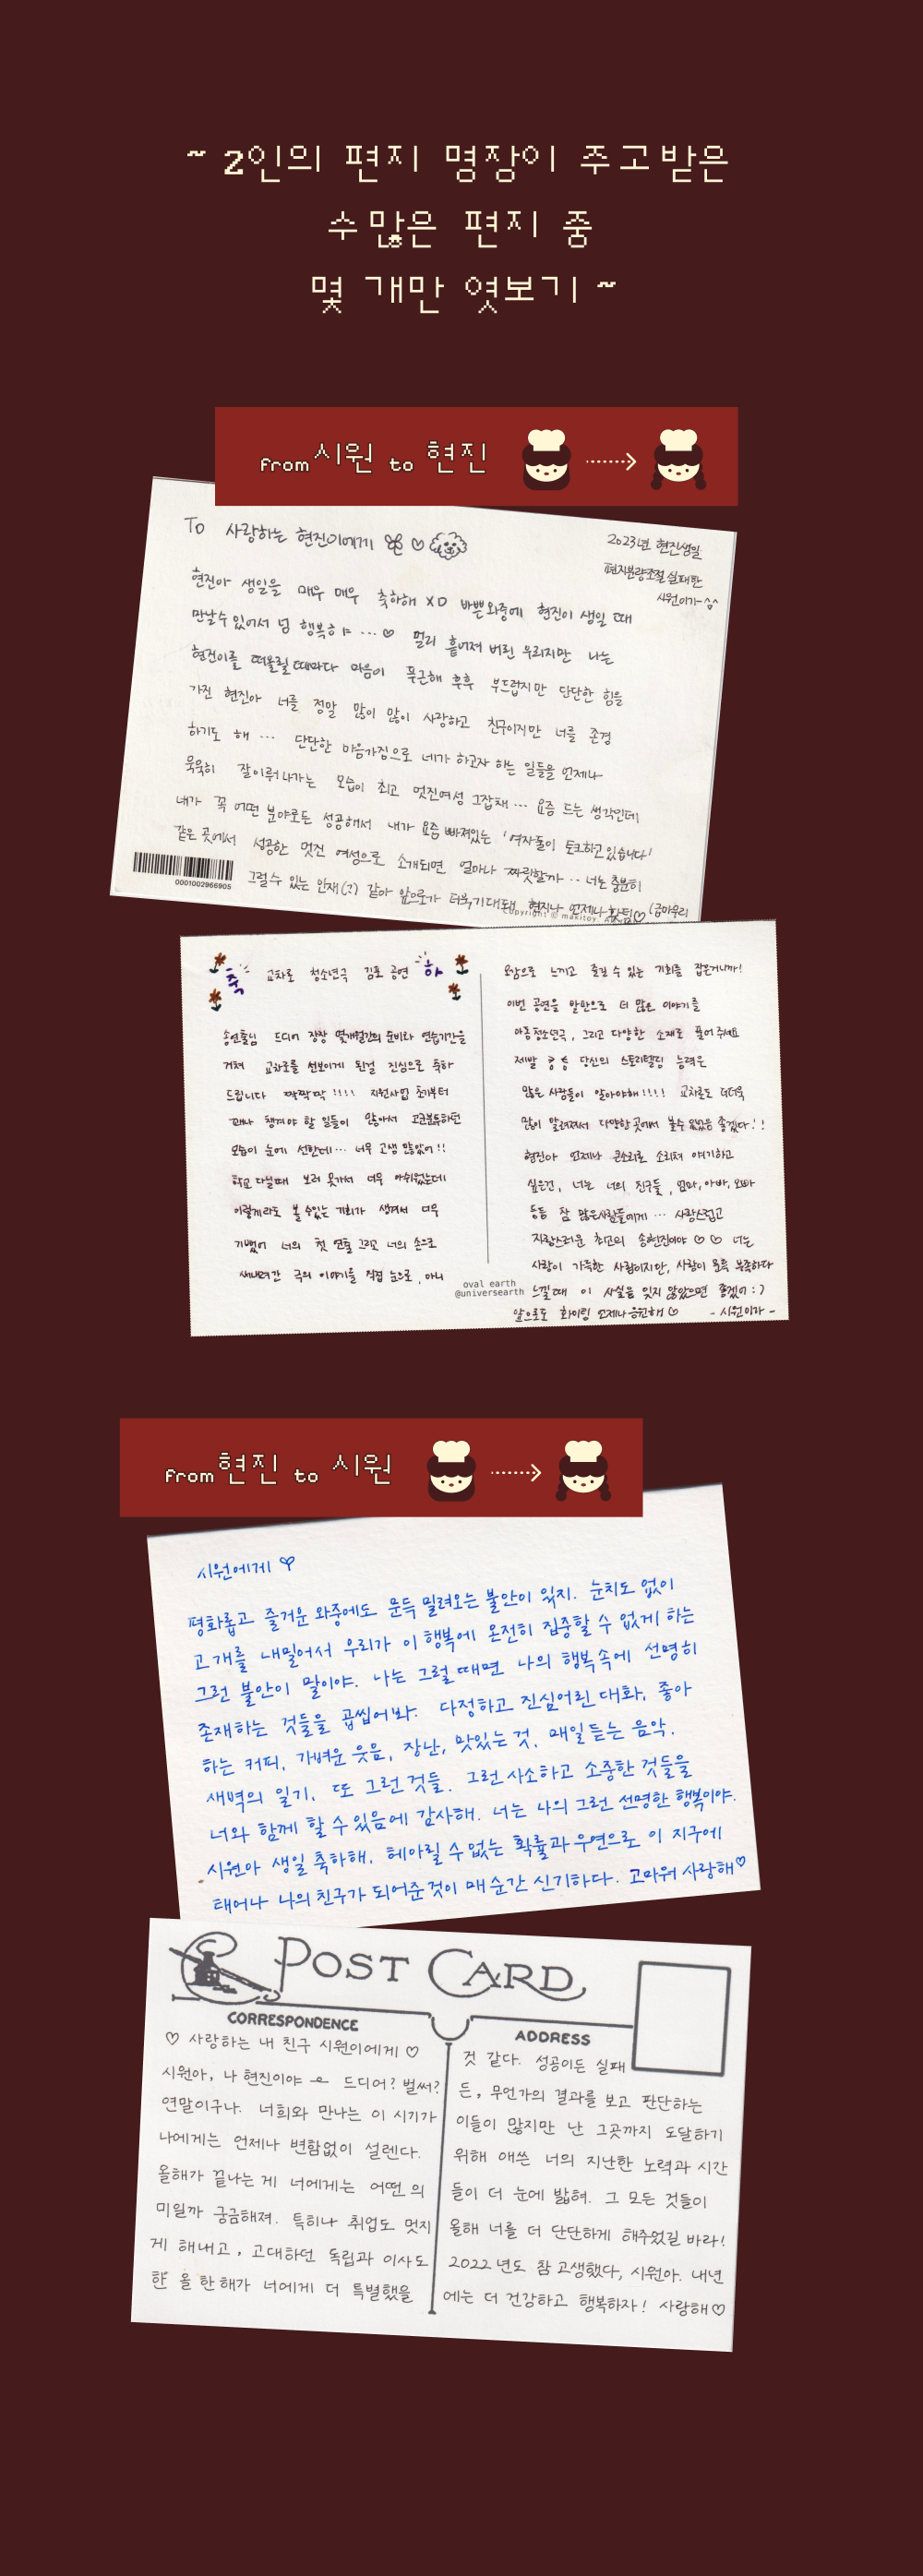 ~ 2인의 편지 명장이 주고받은
수많은 편지 중
몇 개만 엿보기 ~
from 시원 to 현진
To 사랑하는 현진이에게 ♡
2023년 현진생일
편지분량조절 실패한
시원이가-^^
현진아 생일을 매우 매우 축하해 XO 바쁜와중에 현진이 생일 때
만날수있어서 넘 행복하다 ...♡ 멀리 흩어져 버린 우리지만 나는
현진이를 떠올릴때마다 마음이 푸근해 후후 부드럽지만 단단한 힘을
가진 현진아 너를 정말 많이 많이 사랑하고 친구이지만 너를 존경
하기도 해 ... 단단한 마음가짐으로 네가 하고자 하는 일들을 언제나
묵묵히 잘이뤄나가는 모습이 최고 멋진여성 그잡채... 요즘 드는 생각인데
네가 꼭 어떤 분야로든 성공해서 내가 요즘 빠져있는 '여자들이 토크하고있습니다'
같은 곳에서 성공한 멋진 여성으로 소개되면 얼마나 짜릿할까... 너는 충분히
그럴수 있는 인재(?) 같아 앞으로가 더욱기대돼 현진아 언제나 화팅♡
0001002966905
축 교차로 청소년극 김포 공연 하
송연출님 드디어 장장 몇개월간의 준비와 연습기간을
거쳐 교차로를 선보이게 된걸 진심으로 축하
드립니다 짝짝짝!!!! 지원사업 초기부터
꽤나 챙겨야 할 일들이 많아서 고군분투하던
모습이 눈에 선한데... 너무 고생 많았어!!
학교 다닐때 보러 못가서 너무 아쉬웠는데
이렇게라도 볼 수있는 기회가 생겨서 너무
기뻤어 너의 첫 연출 그리고 너의 손으로
새내려간 극의 이야기를 직접 눈으로, 아니
오감으로 느끼고 즐길 수 있는 기회를 잡은거니까!
이번 공연을 발판으로 더 많은 이야기를
아동청소년극, 그리고 다양한 소재로 풀어주세요
제발 당신의 스토리텔링 능력은
많은 사람들이 알아야해!!!! 교차로도 더더욱
많이 알려져서 다양한곳에서 볼수 있었음 좋겠다!!
현진아 언제나 큰소리로 소리쳐 얘기하고
싶은건, 너는 너의 친구들, 엄마, 아빠, 오빠
등등 참 많은사람들에게... 사랑스럽고
자랑스러운 최고의 송현진이야 ♡♡ 너는
사랑이 가득한 사람이지만, 사랑이 문득 부족하다
느낄때 이 사실을 잊지 않았으면 좋겠어 :)
앞으로도 화이팅 언제나응원해♡ - 시원이가 -
oval earth
@universearth
from 현진 to 시원
시원에게 ♡
평화롭고 즐거운 와중에도 문득 밀려오는 불안이 있지. 눈치도 없이
고개를 내밀어서 우리가 이 행복에 온전히 집중할 수 없게 하는
그런 불안이 말이야. 나는 그럴 때면 나의 행복 속에 선명히
존재하는 것들을 곱씹어봐. 다정하고 진심어린 대화, 좋아
하는 커피, 가벼운 웃음, 장난, 맛있는 것, 매일 듣는 음악,
새벽의 일기, 또 그런 것들. 그런 사소하고 소중한 것들을
너와 함께 할 수 있음에 감사해. 너는 나의 그런 선명한 행복이야.
시원아 생일 축하해. 헤아릴 수 없는 확률과 우연으로 이 지구에
태어나 나의 친구가 되어준 것이 매 순간 신기하다. 고마워 사랑해♡
POST CARD
CORRESPONDENCE
ADDRESS
♡ 사랑하는 내 친구 시원이에게 ♡
시원아, 나 현진이야 드디어? 벌써?
연말이구나. 너희와 만나는 이 시기가
나에게는 언제나 변함없이 설렌다.
올해가 끝나는 게 너에게는 어떤 의
미일까 궁금해져. 특히나 취업도 멋지
게 해내고, 고대하던 독립과 이사도
한 올 한 해가 너에게 더 특별했을
것 같다. 성공이든 실패
든, 무언가의 결과를 보고 판단하는
이들이 많지만 난 그곳까지 도달하기
위해 애쓴 너의 지난한 노력과 시간
들이 더 눈에 밟혀. 그 모든 것들이
올해 너를 더 단단하게 해주었길 바라!
2022년도 참 고생했다, 시원아. 내년
에는 더 건강하고 행복하자! 사랑해♡